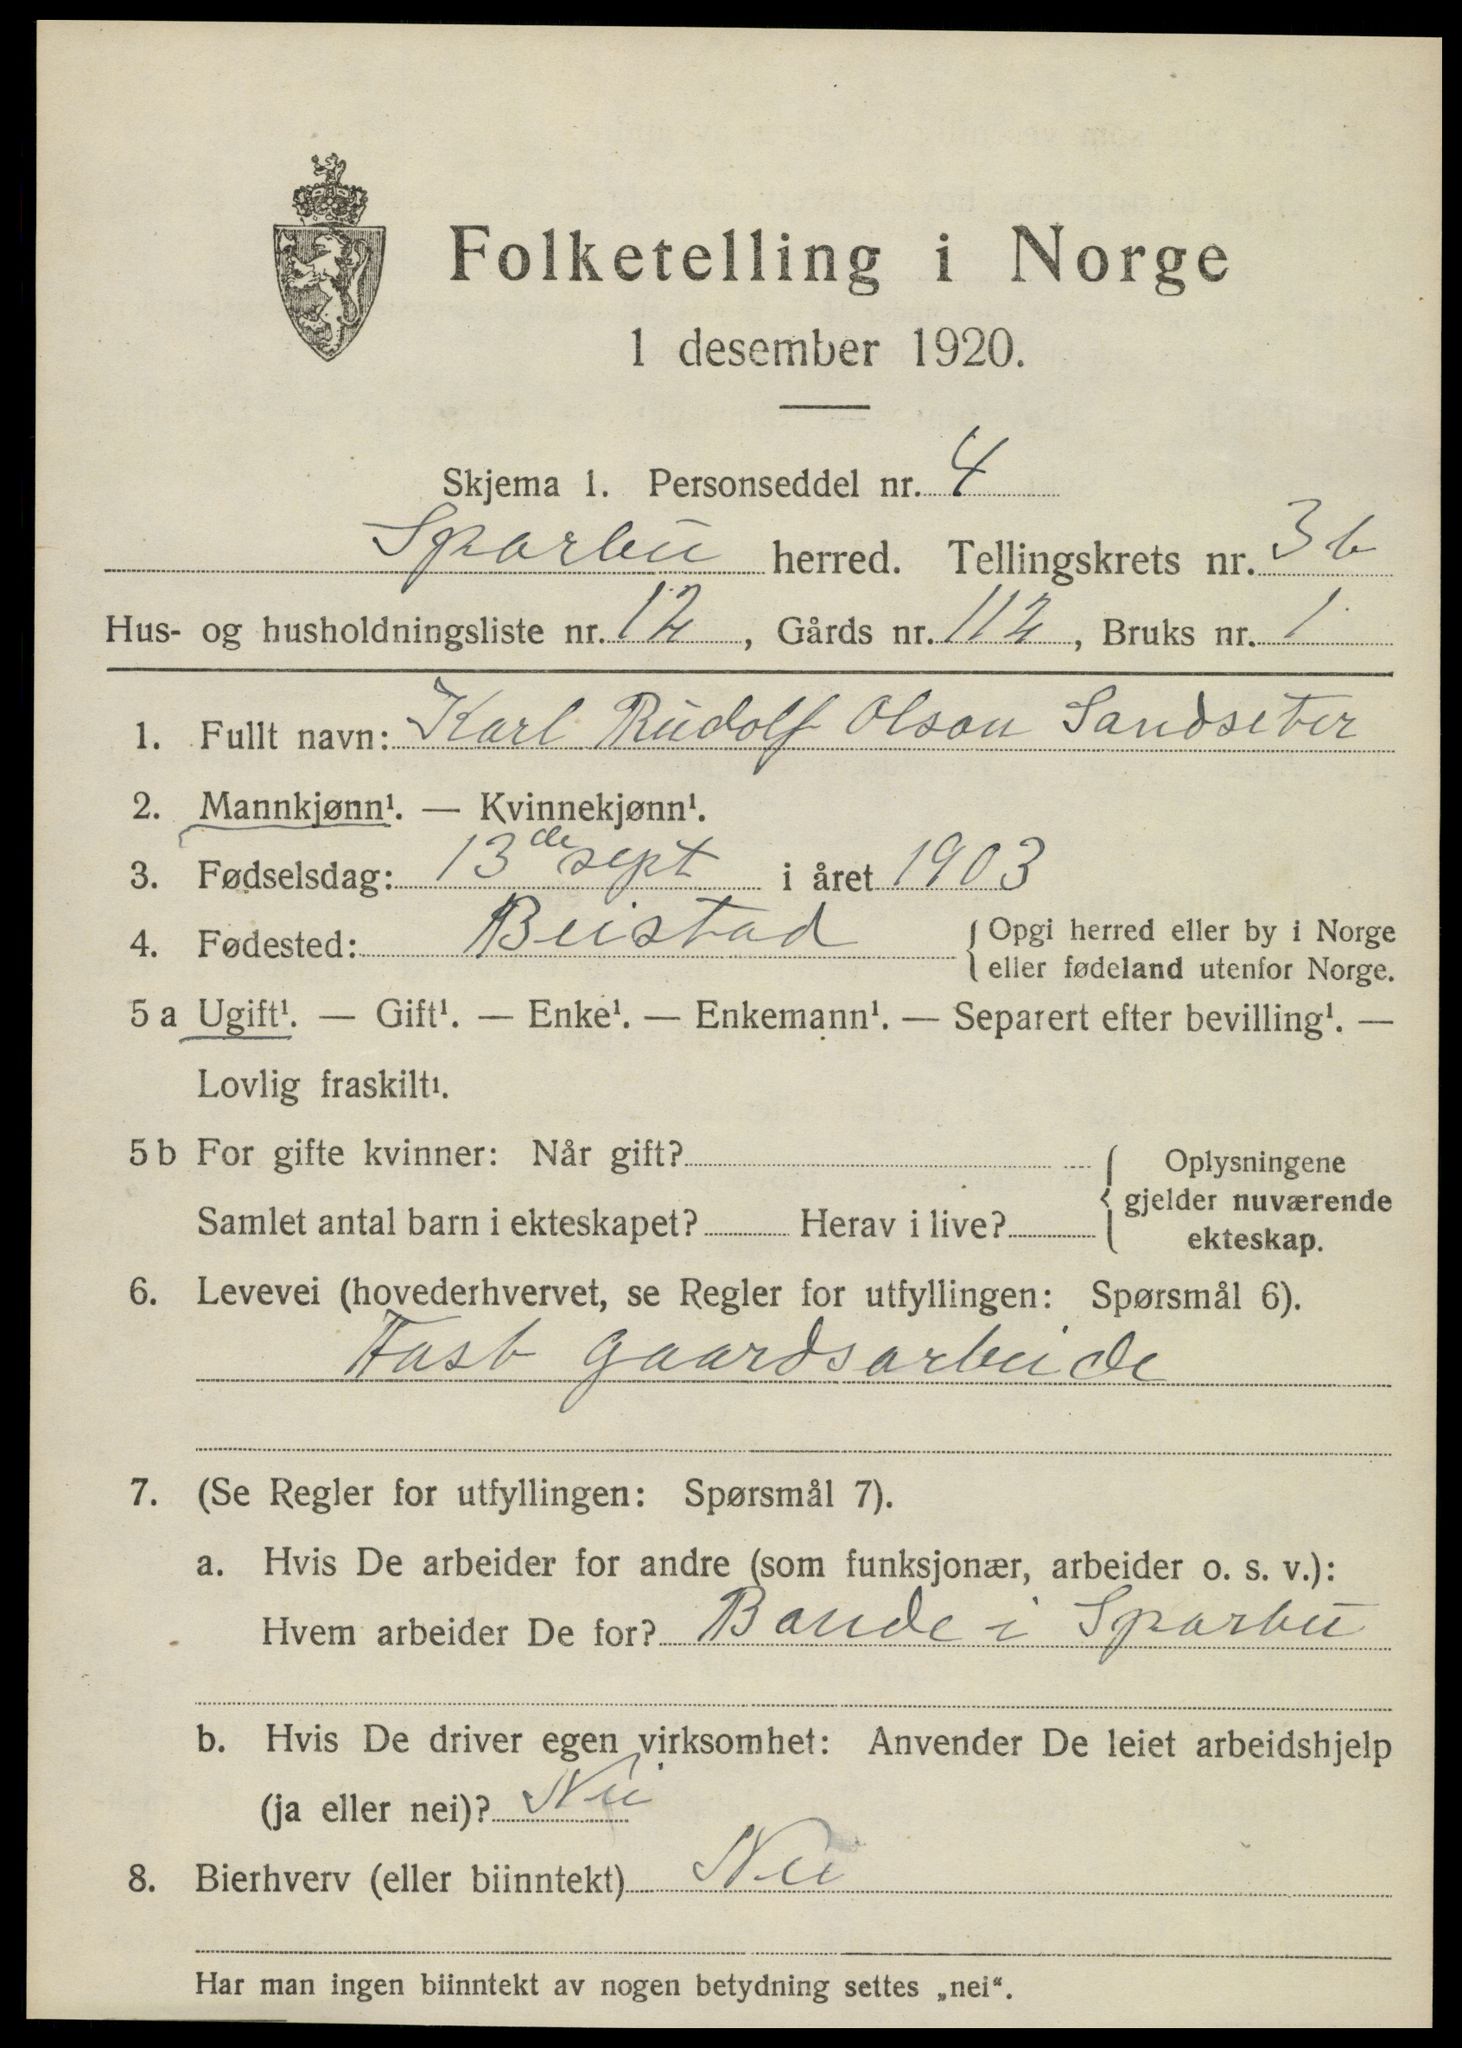 Folketelling i Norge
1 desember 1920.
Skjema 1. Personseddel nr. 4
Sparbu herred. Tellingskrets nr. 3b
Hus- og husholdningsliste nr. 12, Gårds nr. 112, Bruks nr. 1
1. Fullt navn: Karl Rudolf Olson Sandseter
2. Mannkjønn¹. — Kvinnekjønn¹.
3. Fødselsdag: 13de sept i året 1903
4. Fødested: Beistad { Opgi herred eller by i Norge
eller fødeland utenfor Norge.
5 a Ugift¹. — Gift¹. — Enke¹. — Enkemann¹. — Separert efter bevilling¹. —
Lovlig fraskilt¹.
5 b For gifte kvinner: Når gift? { Oplysningene
gjelder nuværende
Samlet antal barn i ekteskapet? Herav i live? ekteskap.
6. Levevei (hovederhvervet, se Regler for utfyllingen: Spørsmål 6).
Fast gaardsarbeide
7. (Se Regler for utfyllingen: Spørsmål 7).
a. Hvis De arbeider for andre (som funksjonær, arbeider o. s. v.):
Hvem arbeider De for? Bonde i Sparbu
b. Hvis De driver egen virksomhet: Anvender De leiet arbeidshjelp
(ja eller nei)? Nei
8. Bierhverv (eller biinntekt) Nei
Har man ingen biinntekt av nogen betydning settes „nei“.